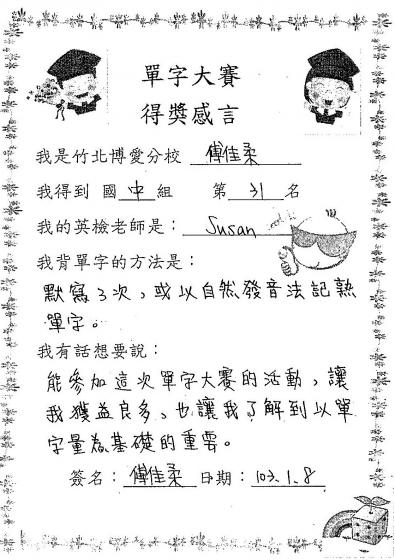 單字大賽
得獎感言
我是竹北博愛分校 傅佳柔
我得到 國中組 第 31 名
我的英檢老師是： Susan
我背單字的方法是：
默寫3次，或以自然發音法記熟
單字。
我有話想要說：
能參加這次單字大賽的活動，讓
我獲益良多、也讓我了解到以單
字量為基礎的重要。
簽名：傅佳柔 日期：103.1.8